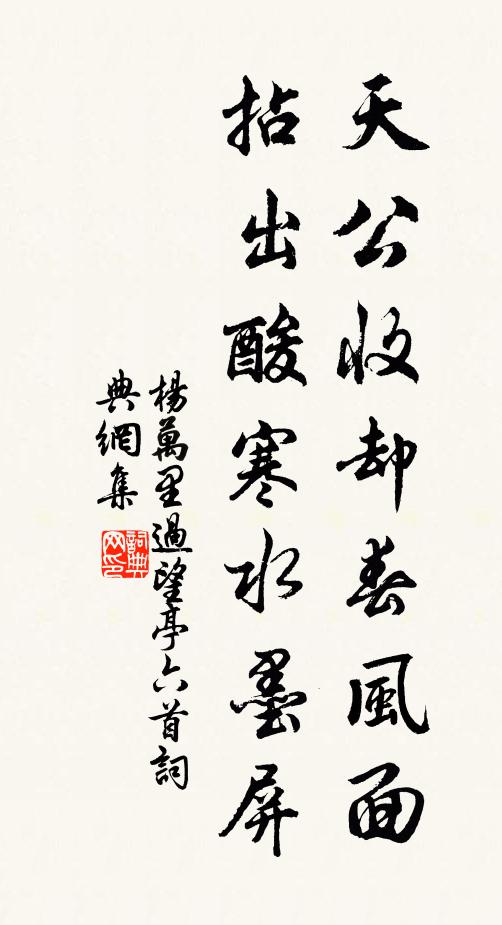 天公收却春風面
拈出酸寒水墨屏
楊萬里過望亭六首詞
典網集
詞典
网印